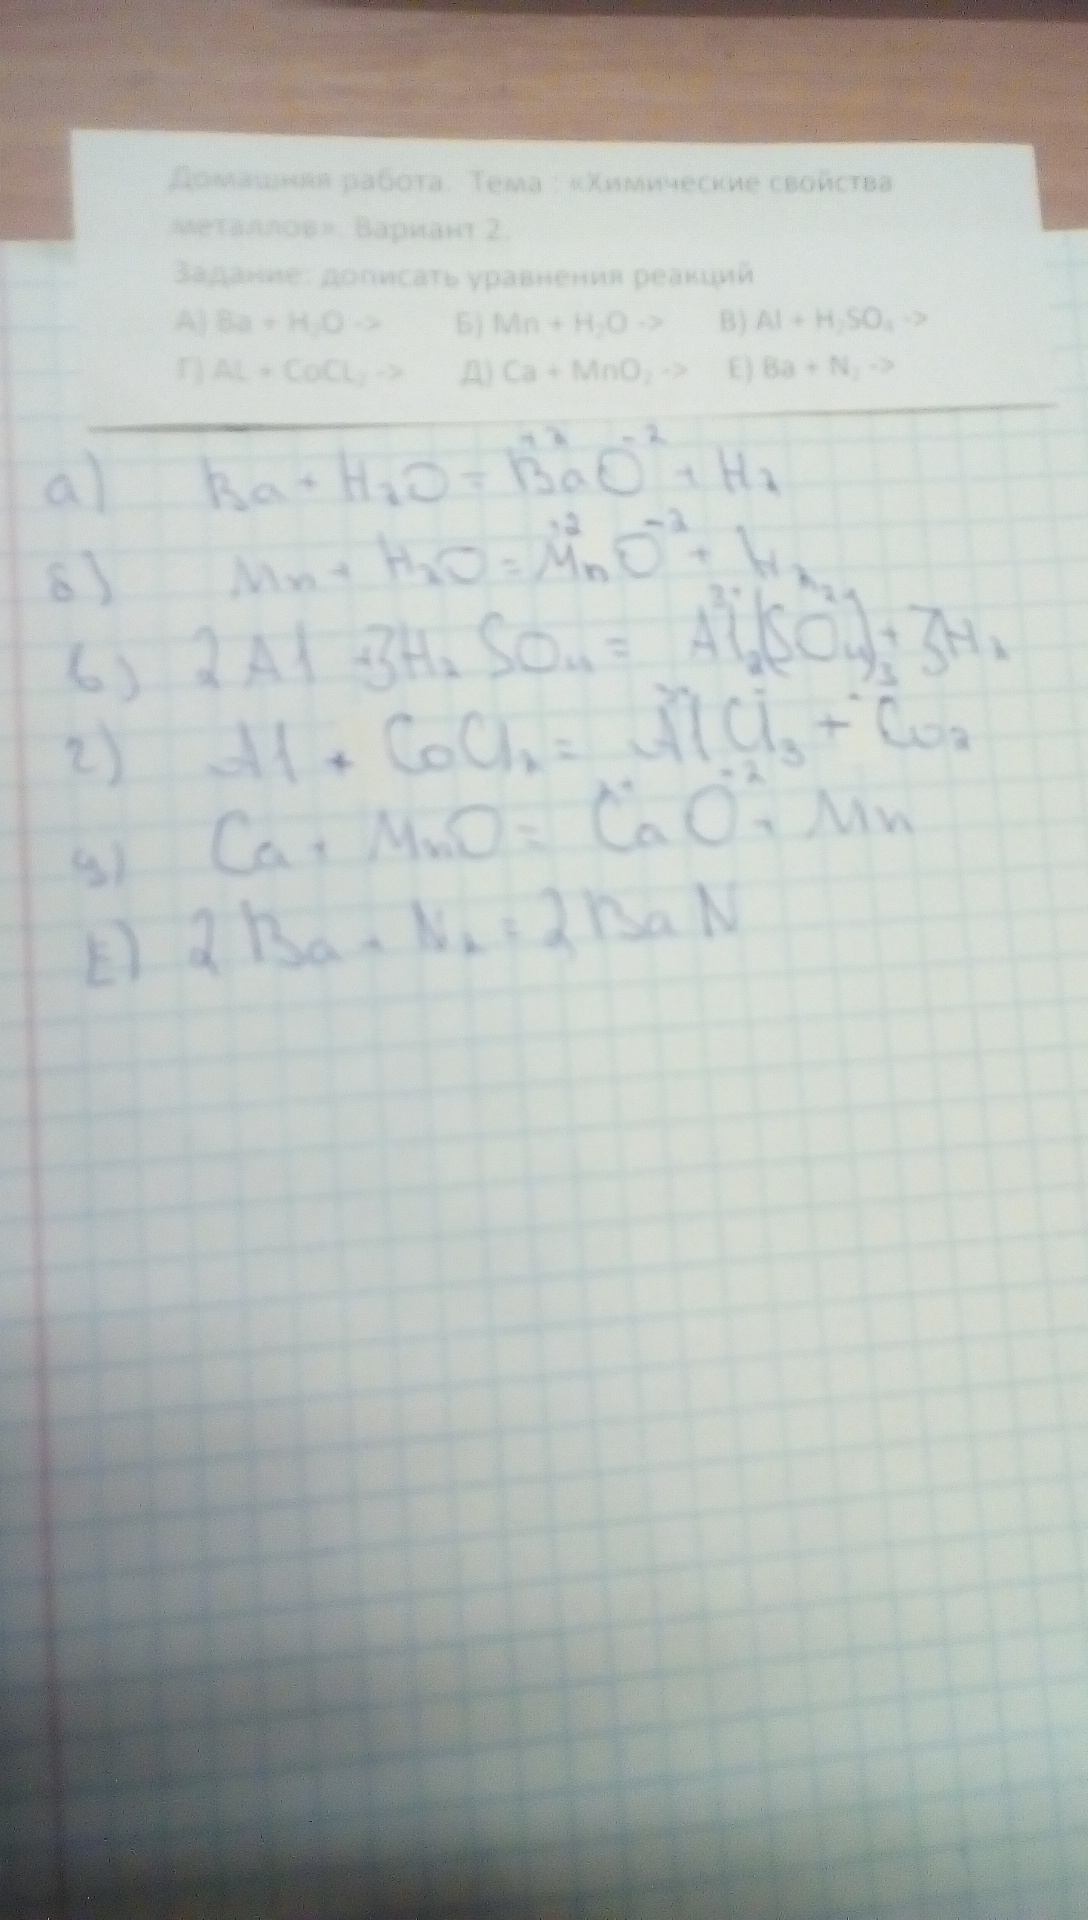 Домашняя работа. Тема : «Химические свойства
металлов». Вариант 2.
Задание: дописать уравнения реакций
А) Ba + H₂O -> Б) Mn + H₂O -> В) Al + H₂SO₄ ->
Г) AL + CoCL₂ -> Д) Ca + MnO₂ -> Е) Ba + N₂ ->
а) Ba + H₂O = Ba⁺²O⁻² + H₂
б) Mn + H₂O = Mn⁺²O⁻² + H₂
в) 2Al + 3H₂SO₄ = Al₂(SO₄)₃ + 3H₂
г) Al + CoCl₂ = AlCl₃ + Co₂
д) Ca + MnO = CaO⁻² + Mn
Е) 2Ba + N₂ = 2BaN